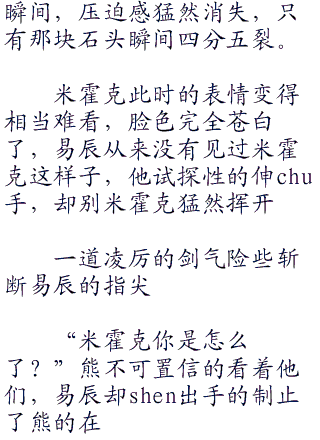 瞬间，压迫感猛然消失，只
有那块石头瞬间四分五裂。
米霍克此时的表情变得
相当难看，脸色完全苍白
了，易辰从来没有见过米霍
克这样子，他试探性的伸chu
手，却别米霍克猛然挥开
一道凌厉的剑气险些斩
断易辰的指尖
“米霍克你是怎么
了？”熊不可置信的看着他
们，易辰却shen出手的制止
了熊的在